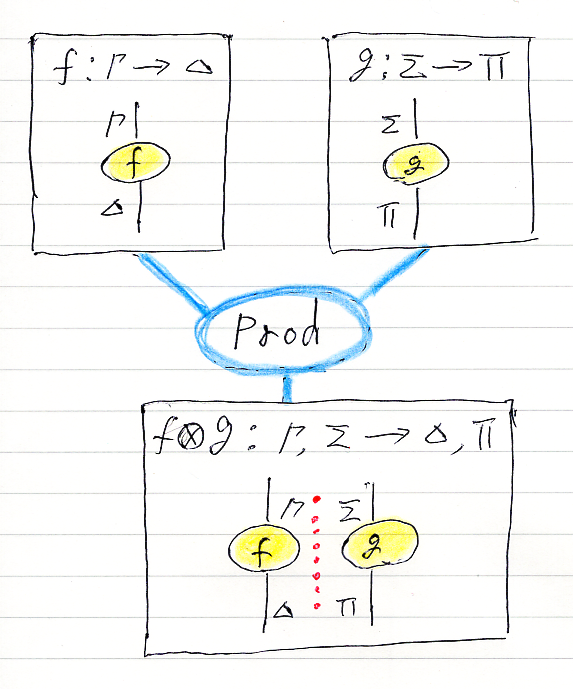 f : Γ → Δ
Γ
f
Δ
g : Σ → Π
Σ
g
Π
Prod
f⊗g : Γ, Σ → Δ, Π
Γ Σ
f g
Δ Π